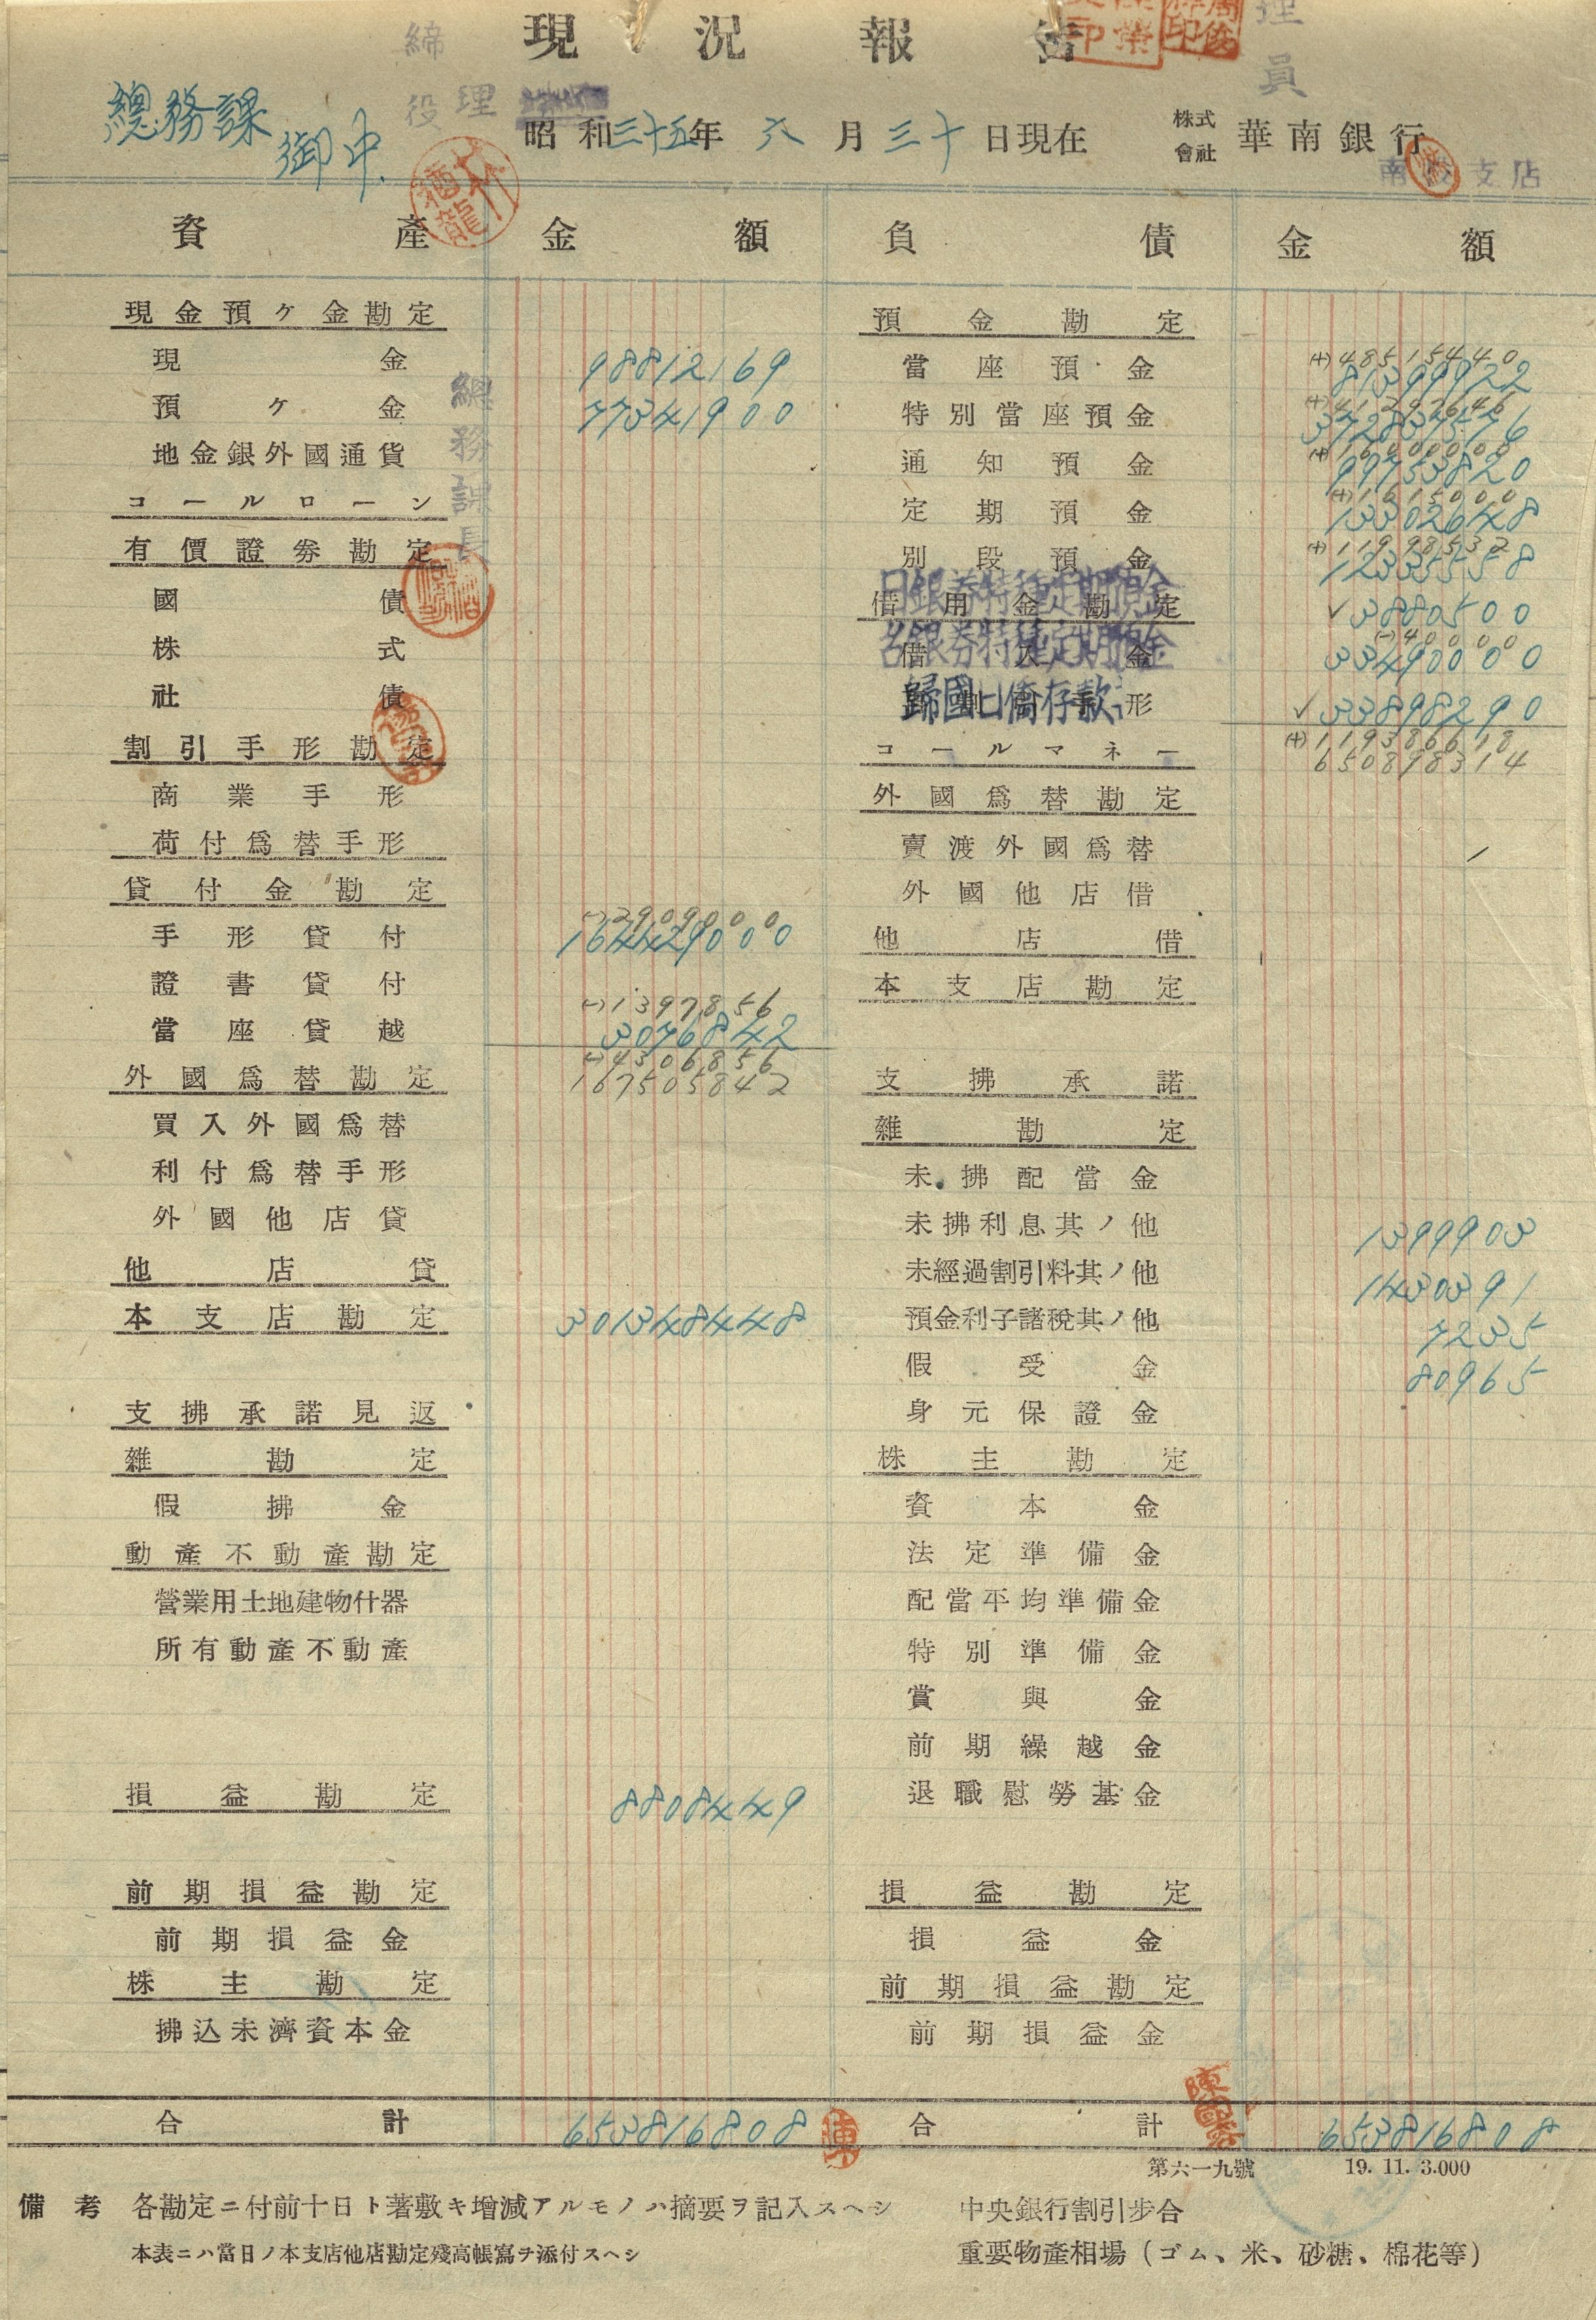 現況報告
締役
理
理員
總務課御中
昭和三十五年六月三十日現在
株式會社 華南銀行
南支店
資產 金額 負債 金額
現金預ケ金勘定
現金 98812169
預ケ金 77341900
地金銀外國通貨
コールローン
有價證券勘定
國債
株式
社債
割引手形勘定
商業手形
荷付爲替手形
貸付金勘定
(-)2909000
手形貸付 164429000
證書貸付
(-)1397856
當座貸越 3076842
(-)4306856
外國爲替勘定 167505842
買入外國爲替
利付爲替手形
外國他店貸
他店貸
本支店勘定 301348448
支拂承諾見返
雜勘定
假拂金
動產不動產勘定
營業用土地建物什器
所有動產不動產
損益勘定 8808449
前期損益勘定
前期損益金
株主勘定
拂込未濟資本金
合計 653816808
總務課長
預金勘定
(+)48515440
當座預金 81399922
(+)41292646
特別當座預金 372837576
(+)16000000
通知預金 99753820
(+)1615000
定期預金 13302648
(+)11998532
別段預金 12335558
借用金勘定
日銀券特種定期預金 ✓3880500
(-)40000
借入金
名銀券特種定期預金 33490000
歸國日僑存款 ✓33898290
(+)119386618
コールマネー 650898314
外國爲替勘定
賣渡外國爲替
外國他店借
他店借
本支店勘定
支拂承諾
雜勘定
未拂配當金
未拂利息其ノ他 1399903
未經過割引料其ノ他 1430391
預金利子諸稅其ノ他 7235
假受金 80965
身元保證金
株主勘定
資本金
法定準備金
配當平均準備金
特別準備金
賞與金
前期繰越金
退職慰勞基金
損益勘定
損益金
前期損益勘定
前期損益金
合計 653816808
第六一九號 19. 11. 3.000
備考 各勘定ニ付前十日ト著敷キ增減アルモノハ摘要ヲ記入スヘシ
本表ニハ當日ノ本支店他店勘定殘高帳寫ヲ添付スヘシ
中央銀行割引步合
重要物產相場(ゴム、米、砂糖、棉花等)